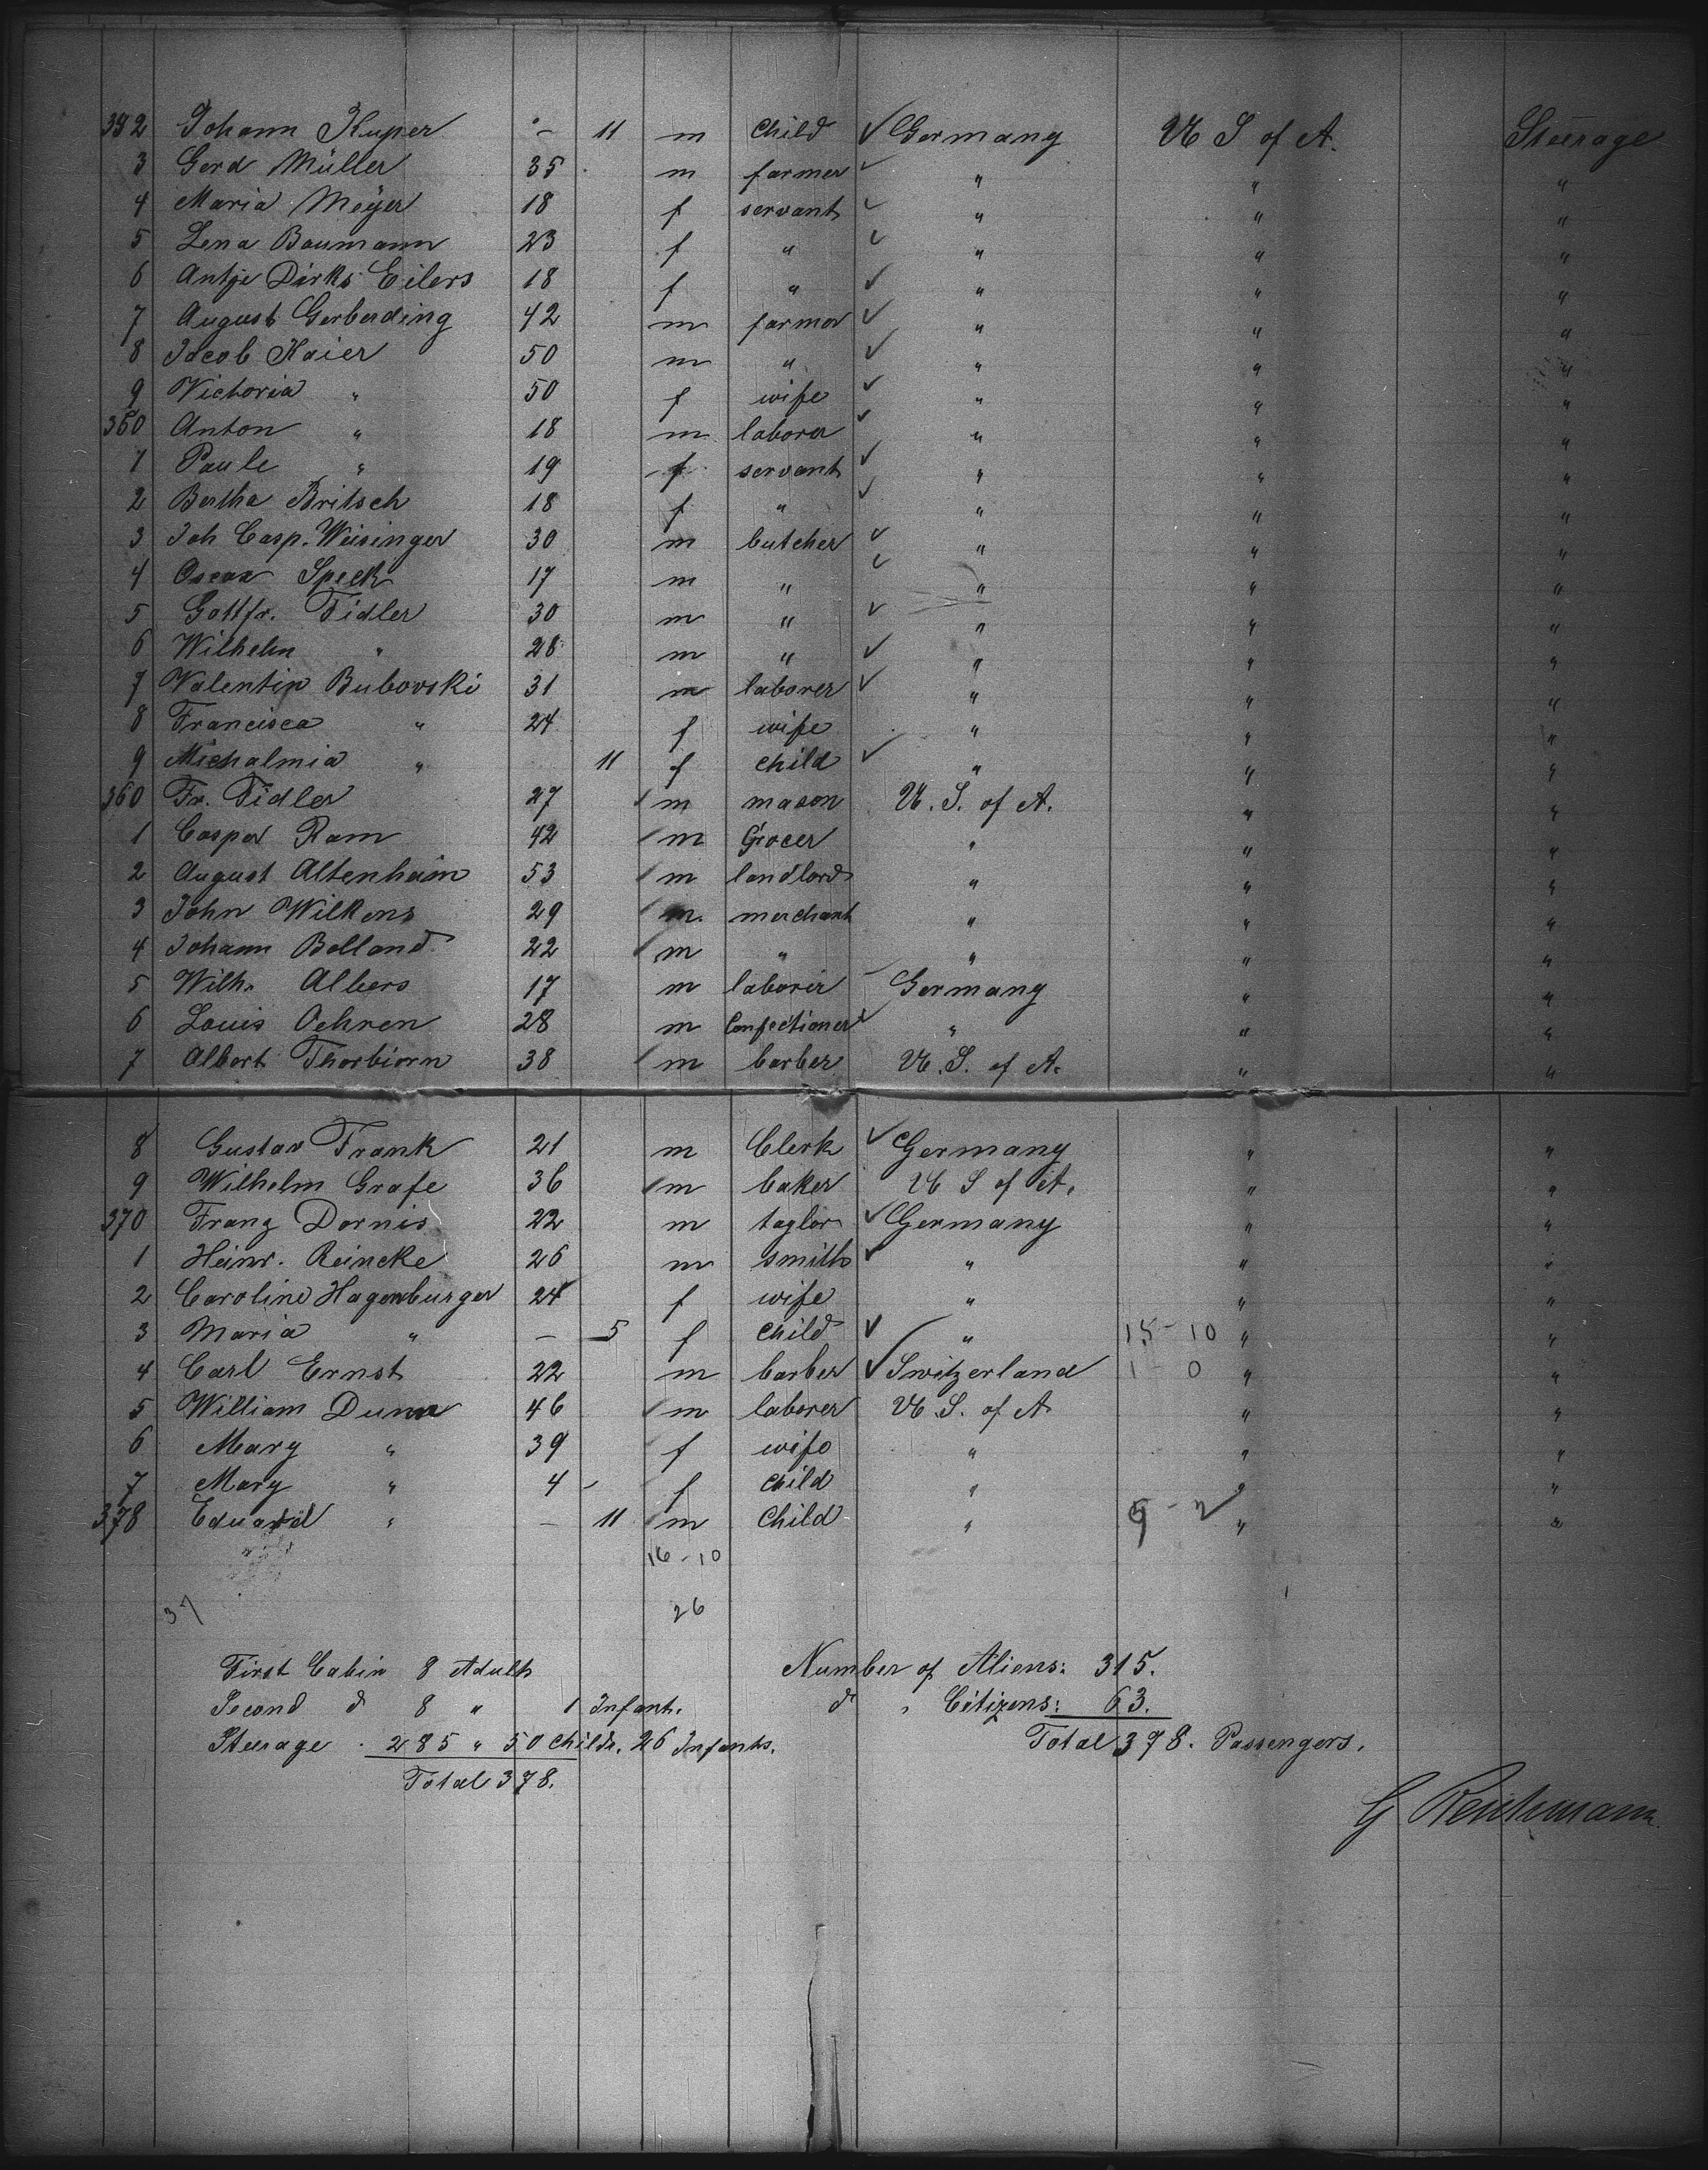 392 Johann Kuper - 11 m Child ✓ Germany U S of A. Steerage
3 Gerd Müller 35 m farmer ✓ " " "
4 Maria Meyer 18 f servant ✓ " " "
5 Lena Baumann 23 f " ✓ " " "
6 Antje Dirks Eilers 18 f " ✓ " " "
7 August Gerberding 42 m farmer ✓ " " "
8 Jacob Haier 50 m " ✓ " " "
9 Victoria " 50 f wife ✓ " " "
350 Anton " 18 m laborer ✓ " " "
1 Paule " 19 f servant ✓ " " "
2 Bertha Britsch 18 f " ✓ " " "
3 Joh Casp. Weisinger 30 m butcher ✓ " " "
4 Oscar Speck 17 m " ✓ " " "
5 Gottfr. Fidler 30 m " ✓ " " "
6 Wilhelm " 28 m " ✓ " " "
7 Valentin Bubovski 31 m laborer ✓ " " "
8 Francisca " 24 f wife " " "
9 Michalmia " 11 f child ✓ " " "
360 Fr. Fidler 27 m mason U. S. of A. " "
1 Caspar Ram 42 m Grocer " " "
2 August Altenhain 53 m landlord " " "
3 John Wilkens 29 m. merchant " " "
4 Johann Bolland 22 m " " " "
5 Wilh. Albers 17 m laborer Germany " "
6 Louis Oehren 28 m Confectioner " " "
7 Albert Thorbiorn 38 m barber U. S. of A. " "
8 Gustav Frank 21 m Clerk ✓ Germany " "
9 Wilhelm Grafe 36 m baker U S of A. " "
370 Franz Dornis 22 m taylor ✓ Germany " "
1 Heinr. Reincke 26 m smith ✓ " " "
2 Caroline Hagenburger 24 f wife " " "
3 Maria " - 5 f child ✓ " 15-10 " "
4 Carl Ernst 22 m barber ✓ Switzerland 1-0 " "
5 William Dunn 46 m laborer U. S. of A " "
6 Mary " 39 f wife " " "
7 Mary " 4 - f child " " "
378 Eduard " - 11 m Child " " "
16-10
37 26
First Cabin 8 Adults Number of Aliens: 315.
Second d 8 " 1 Infant. d " Citizens: 63.
Steerage . 285 " 50 Childr. 26 Infants. Total 378. Passengers.
Total 378.